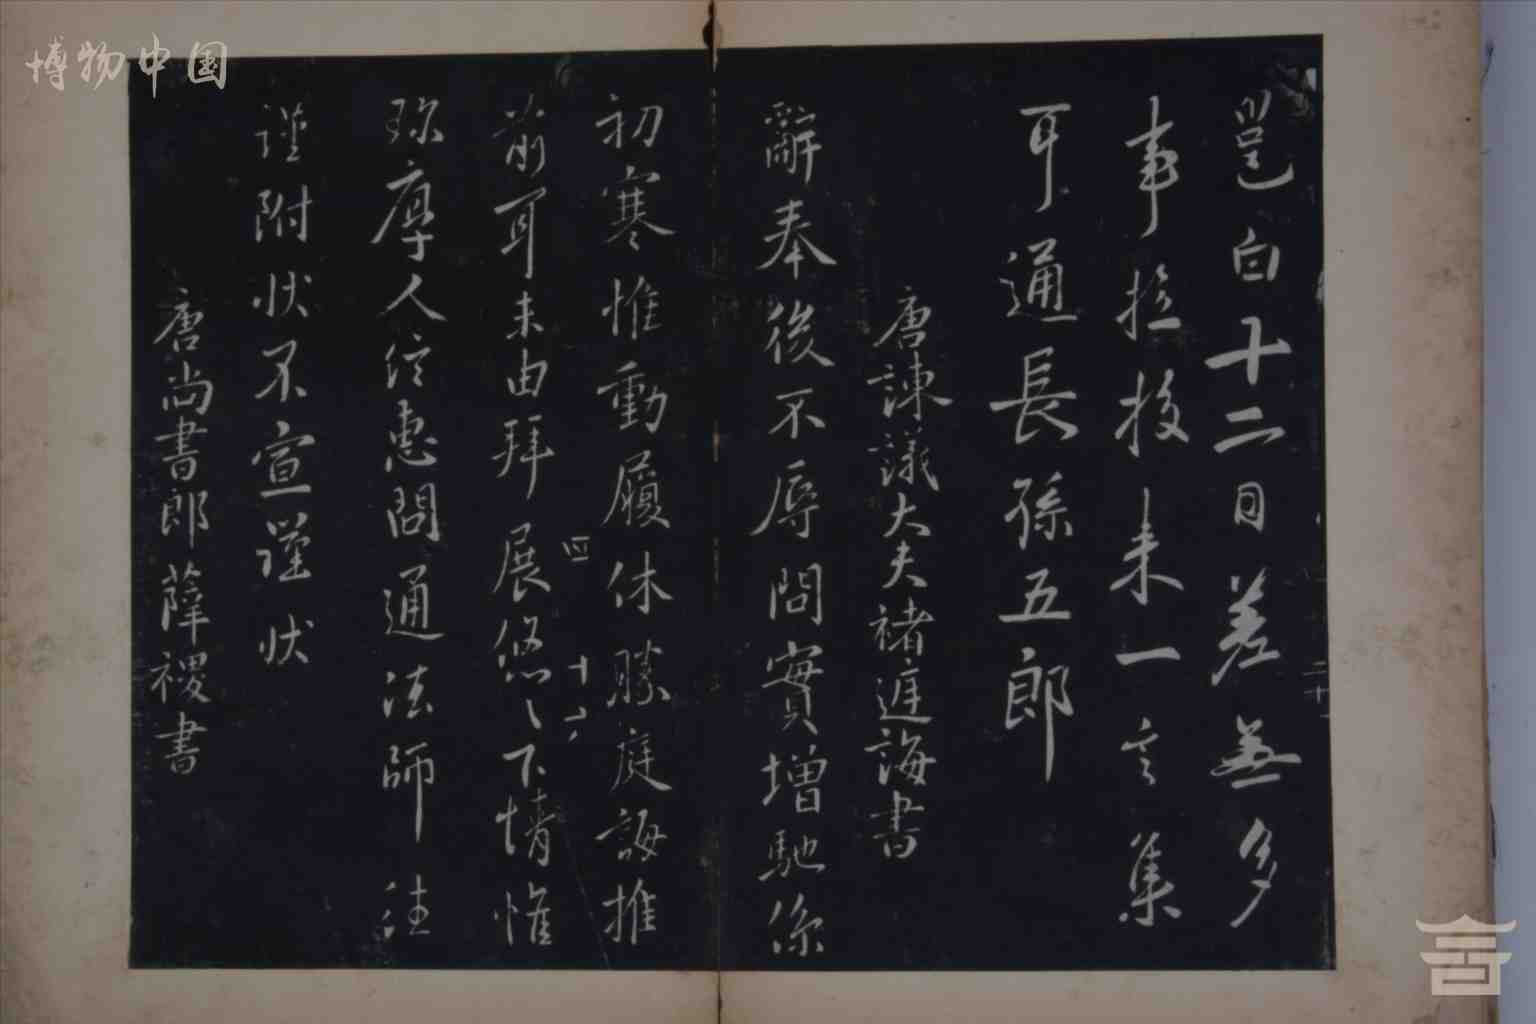 邕白十二日差無多
事拉拔未一言集
耳通長孫五郎
唐諫議大夫褚遂誨書
辭奉後不辱問實增馳係
初寒惟動履休勝庭誨推
四
十六
前耳未由拜展悠〻下情惟
珎厚人信惠問通法師注
謹附狀不宣謹狀
唐尚書郎薛稷書
二十
博物中国